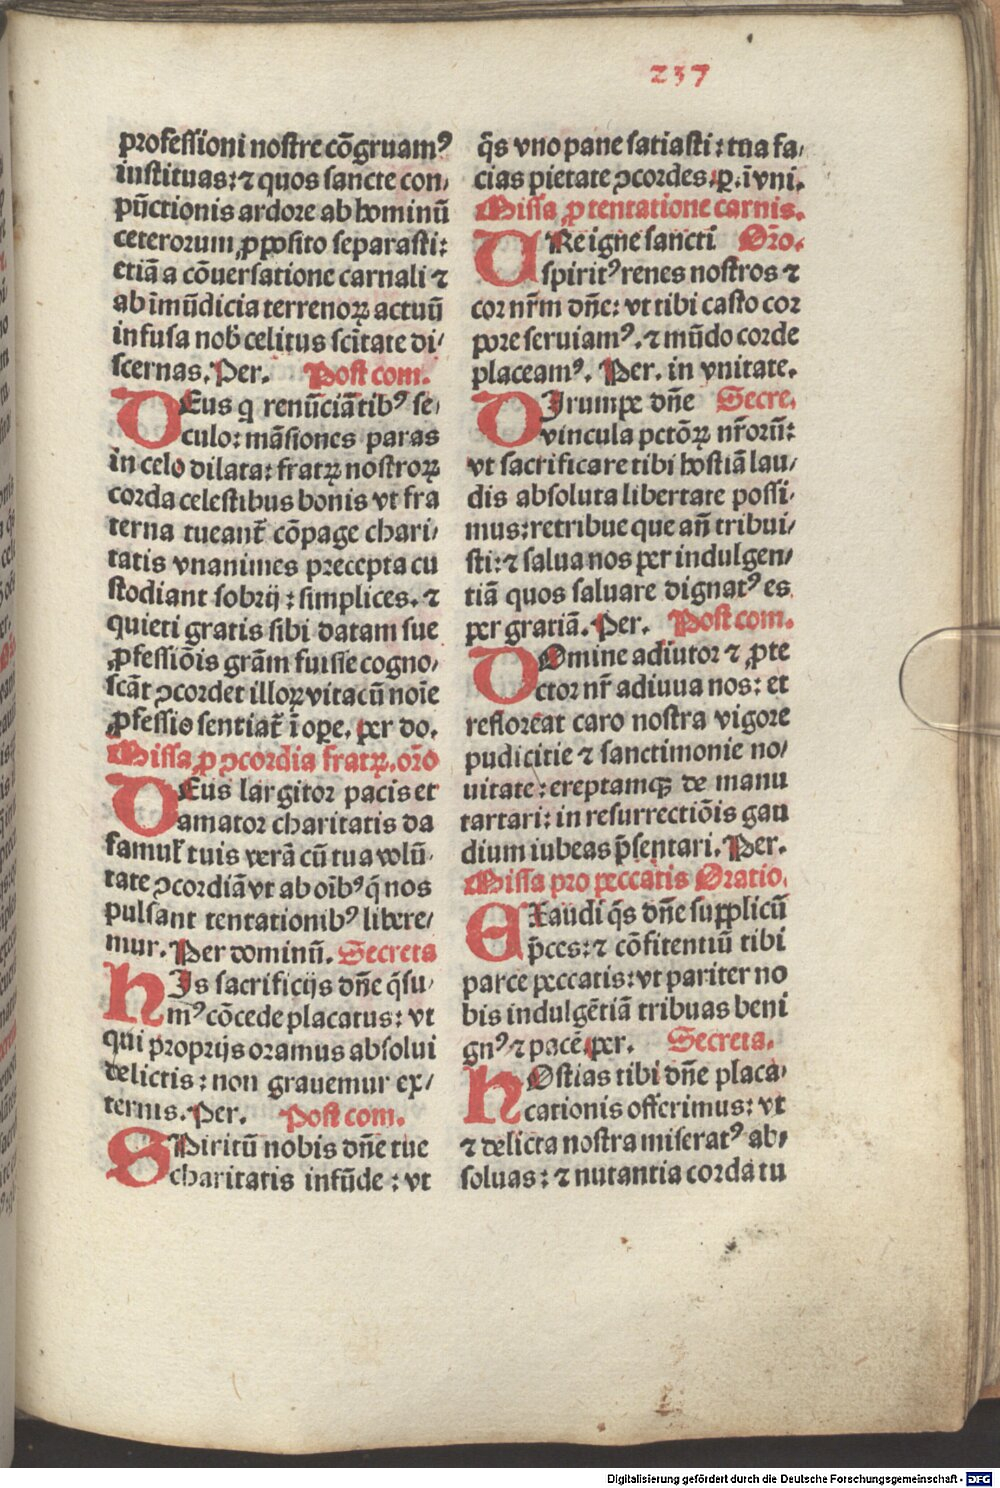 237
professioni nostre cōgruamꝰ
instituas: ⁊ quos sancte con/
pūctionis ardore ab hominū
ceterorum ꝓposito separasti:
etiā a cōuersatione carnali ⁊
ab īmūdicia terrenoꝝ actuū
infusa nob̄ celitus scītate di/
scernas. Per. Post com.
DEus q renūciātibꝰ se/
culo: māsiones paras
in celo dilata: fratꝝ nostroꝝ
corda celestibus bonis vt fra
terna tueant̄ cōpage chari/
tatis vnanimes precepta cu
stodiant sobrij: simplices. ⁊
quieti gratis sibi datam sue
ꝓfessiōis grām fuisse cogno/
scāt ꝯcordet illoꝝ vita cū noīe
ꝓfessio sentiat̄ ī ope. per do.
Missa ꝓ ꝯcordia fratꝝ. oro
DEus largitor pacis et
amator charitatis da
famul̄ tuis verā cū tua volū/
tate ꝯcordiā vt ab oībꝰ q̄ nos
pulsant tentationibꝰ libere/
mur. Per dominū. Secreta
HIs sacrificijs dn̄e q̄su/
mꝰ cōcede placatus: vt
qui proprijs oramus absolui
delictis: non grauemur ex/
ternis. Per. Post com.
SPiritū nobis dn̄e tue
charitatis infūde: vt
q̄s vno pane satiasti: tua fa/
cias pietate ꝯcordes. p. ī vni.
Missa ꝓ tentatione carnis.
URe igne sancti Oro.
spiritꝰ renes nostros ⁊
cor nr̄m dn̄e: vt tibi casto cor
pore seruiamꝰ. ⁊ mūdo corde
placeamꝰ. Per. in vnitate.
DIrumpe dn̄e Secre.
vincula pctōꝝ nr̄orū:
vt sacrificare tibi hostiā lau/
dis absoluta libertate possi/
mus: retribue que an̄ tribui/
sti: ⁊ salua nos per indulgen/
tiā quos saluare dignatꝰ es
per gratiā. Per. Post com.
DOmine adiutor ⁊ ꝓte
ctor nr̄ adiuua nos: et
refloreat caro nostra vigore
pudicitie ⁊ sanctimonie no/
uitate: ereptamqꝫ de manu
tartari: in resurrectiōis gau
dium iubeas p̄sentari. Per.
Missa pro peccatis Oratio.
EXaudi q̄s dn̄e supplicū
p̄ces: ⁊ cōfitentiū tibi
parce peccatis: vt pariter no
bis indulgētiā tribuas beni
gnꝰ ⁊ pacē. per. Secreta.
HOstias tibi dn̄e placa/
cationis offerimus: vt
⁊ delicta nostra miseratꝰ ab/
soluas: ⁊ nutantia corda tu
Digitalisierung gefördert durch die Deutsche Forschungsgemeinschaft - DFG